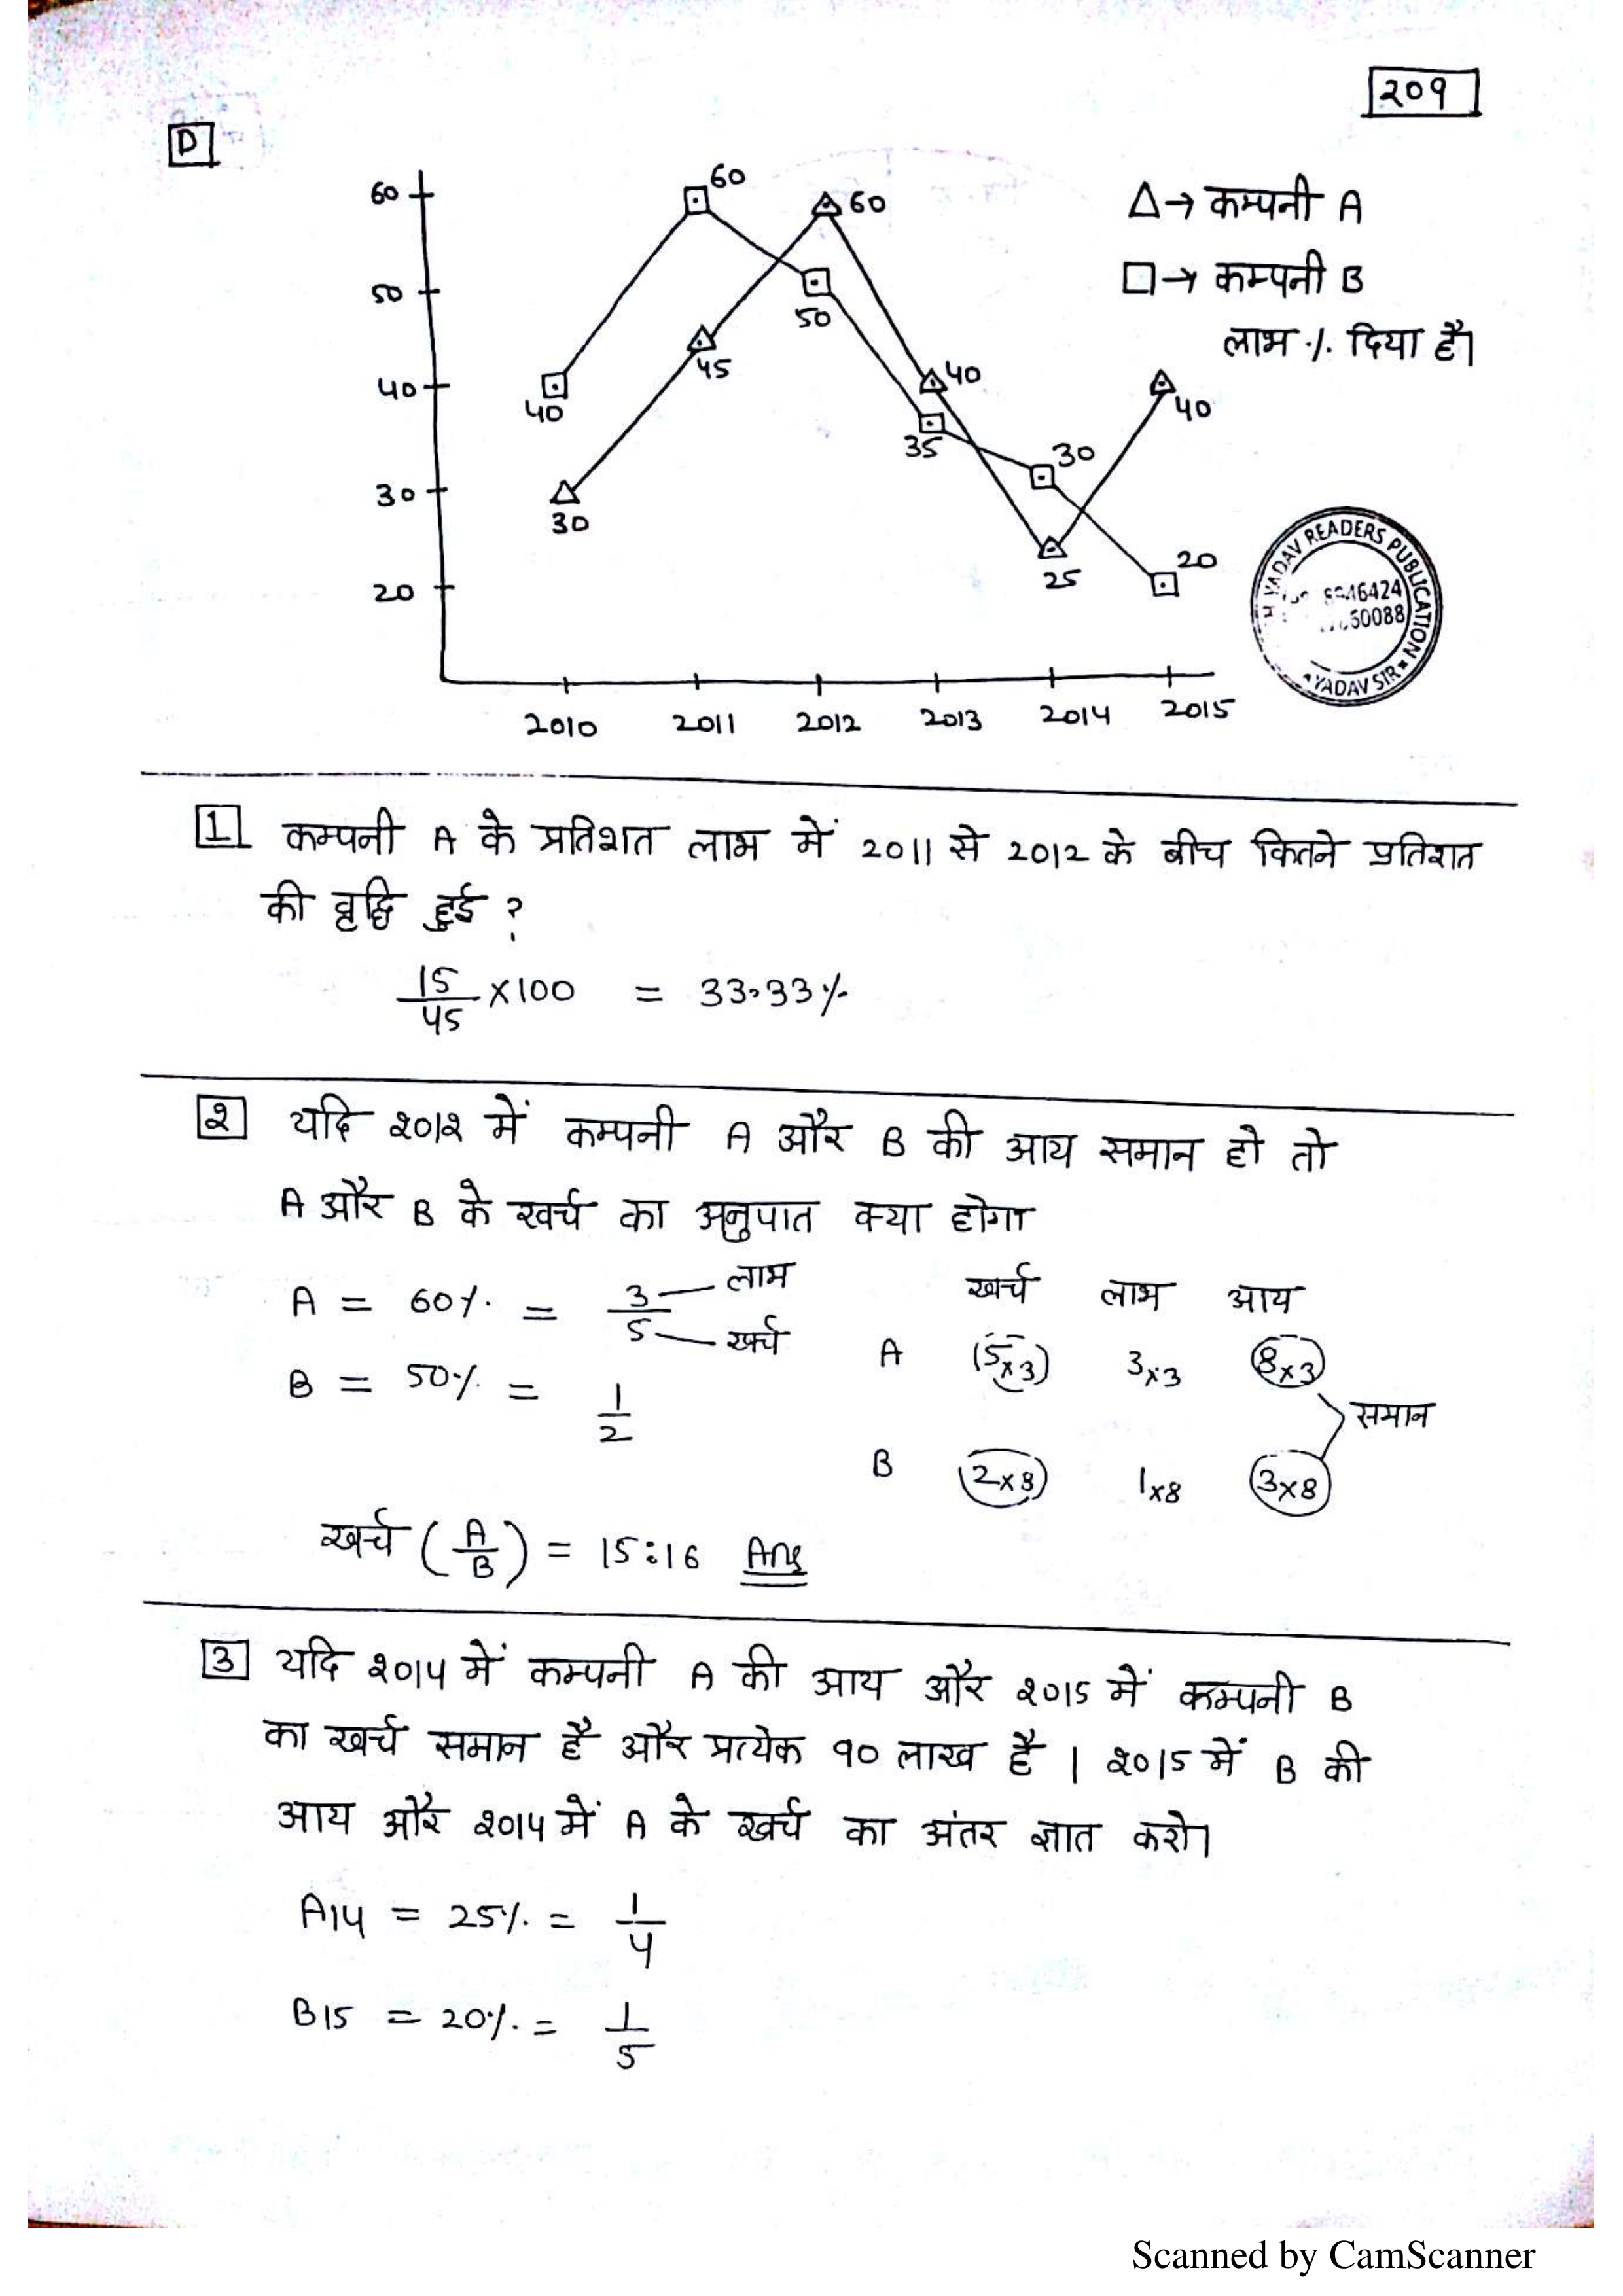 209
D
60
50
40
30
20
60
60
50
45
40
40
35
30
30
25
40
20
2010 2011 2012 2013 2014 2015
△→ कम्पनी A
□→ कम्पनी B
लाभ % दिया है।
YADAV READERS PUBLICATION
YADAV SIR
1 कम्पनी A के प्रतिशत लाभ में 2011 से 2012 के बीच कितने प्रतिशत
की वृद्धि हुई ?
15/45 ×100 = 33.33%
२ यदि २०1२ में कम्पनी A और B की आय समान हो तो
A और B के खर्च का अनुपात क्या होगा
A = 60% = 3/5 लाभ खर्च
B = 50% = 1/2
खर्च लाभ आय
A (5×3) 3×3 (8×3)
समान
B (2×8) 1×8 (3×8)
खर्च (A/B) = 15:16 Ans
3 यदि २०14 में कम्पनी A की आय और २०15 में कम्पनी B
का खर्च समान है और प्रत्येक १० लाख है । २०15 में B की
आय और २०14 में A के खर्च का अंतर ज्ञात करो।
A14 = 25% = 1/4
B15 = 20% = 1/5
Scanned by CamScanner